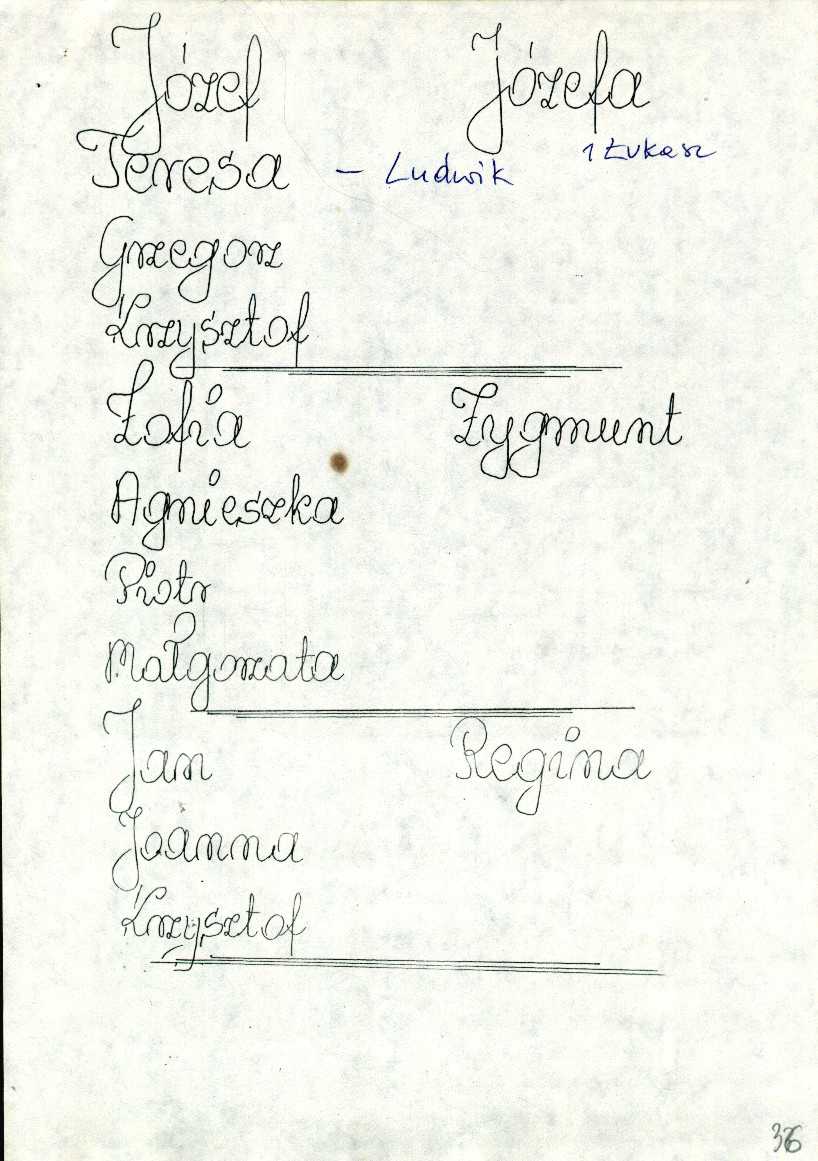 Józef Józefa
Teresa – Ludwik 1 Łukasz
Grzegorz
Krzysztof
Zofia Zygmunt
Agnieszka
Piotr
Małgorzata
Jan Regina
Joanna
Krzysztof